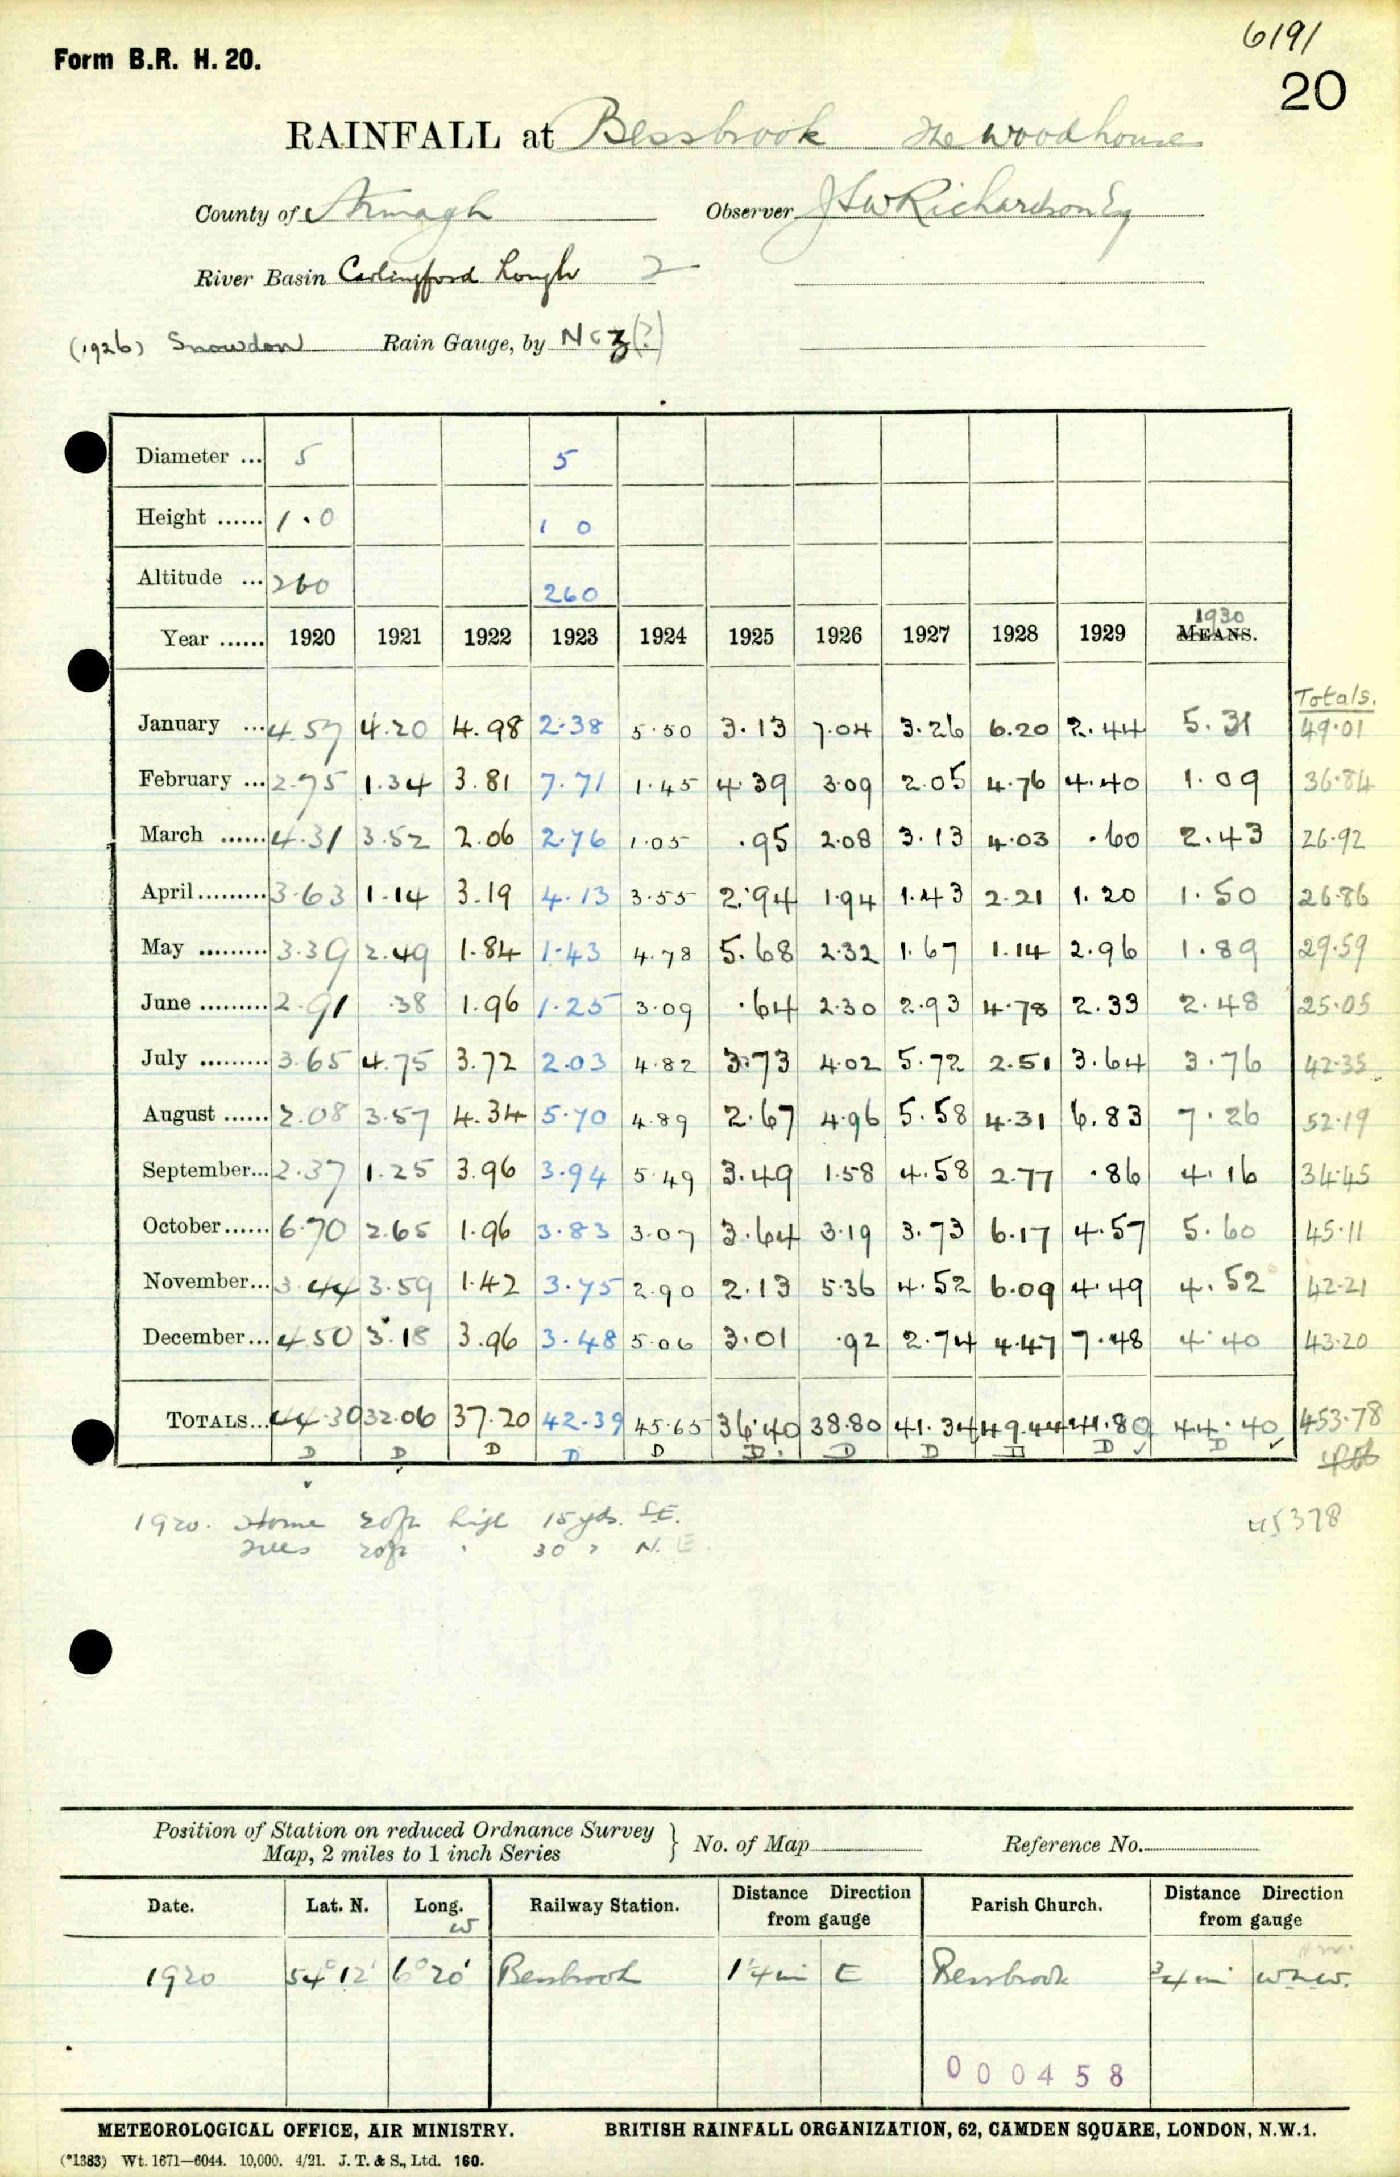 6191
Form B.R. H. 20.
20
RAINFALL at Bessbrook The Woodhouse
County of Armagh Observer J S W Richardson Esq
River Basin Carlingford Lough 2
(1926) Snowdon Rain Gauge, by N & Z (?)
Diameter ... 5 5
Height ...... 1.0 1 0
Altitude ... 260 260
1930
Year ...... 1920 1921 1922 1923 1924 1925 1926 1927 1928 1929 MEANS.
Totals.
January ... 4.57 4.20 4.98 2.38 5.50 3.13 7.04 3.26 6.20 2.44 5.31 49.01
February ... 2.75 1.34 3.81 7.71 1.45 4.39 3.09 2.05 4.76 4.40 1.09 36.84
March ...... 4.31 3.52 2.06 2.76 1.05 .95 2.08 3.13 4.03 .60 2.43 26.92
April ......... 3.63 1.14 3.19 4.13 3.55 2.94 1.94 1.43 2.21 1.20 1.50 26.86
May ......... 3.39 2.49 1.84 1.43 4.78 5.68 2.32 1.67 1.14 2.96 1.89 29.59
June ......... 2.91 .38 1.96 1.25 3.09 .64 2.30 2.93 4.78 2.33 2.48 25.05
July ......... 3.65 4.75 3.72 2.03 4.82 3.73 4.02 5.72 2.51 3.64 3.76 42.35
August ...... 2.08 3.57 4.34 5.70 4.89 2.67 4.96 5.58 4.31 6.83 7.26 52.19
September... 2.37 1.25 3.96 3.94 5.49 3.49 1.58 4.58 2.77 .86 4.16 34.45
October...... 6.70 2.65 1.96 3.83 3.07 3.64 3.19 3.73 6.17 4.57 5.60 45.11
November... 3.44 3.59 1.42 3.75 2.90 2.13 5.36 4.52 6.09 4.49 4.52 42.21
December... 4.50 3.18 3.96 3.48 5.06 3.01 .92 2.74 4.47 7.48 4.40 43.20
TOTALS... 44.30 32.06 37.20 42.39 45.65 36.40 38.80 41.34 49.44 41.80 44.40 453.78
D D D D D D D D D D ✓ D ✓
1920. Home 20ft high 15 yds. S.E.
Trees 20ft " 30 " N.E.
45378
Position of Station on reduced Ordnance Survey
Map, 2 miles to 1 inch Series } No. of Map Reference No.
Date. Lat. N. Long. W Railway Station. Distance Direction from gauge Parish Church. Distance Direction from gauge
1920 54° 12' 6° 20' Bessbrook 1¼ mi E Bessbrook ¾ mi WNW.
000458
METEOROLOGICAL OFFICE, AIR MINISTRY. BRITISH RAINFALL ORGANIZATION, 62, CAMDEN SQUARE, LONDON, N.W.1.
(*1383) Wt. 1671—6044. 10,000. 4/21. J. T. & S., Ltd. 160.